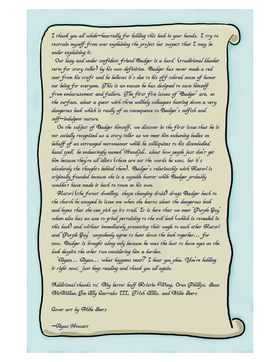 I thank you all whole-heartedly for holding this book in your hands. I try to
restrain myself from over explaining the project but suspect that I may be
under explaining it.
Our lazy and under confident friend Badger is a bard (traditional blanket
term for story teller) by his own definition. Badger has never made a red
cent from his craft and he believes it's due to his off colored sense of humor
not being for everyone. (This is an excuse he has designed to save himself
from embarrassment and failure. The first five issues of "Badger" are, on
the surface, about a quest with three unlikely colleagues hunting down a very
dangerous book which is really of no consequence to Badger's selfish and
self-indulgent nature.
On the subject of Badger himself, we discover in the first issue that he is
not socially recognized as a story teller as we meet him exchanging bodies on
behalf of an arranged
hand spell, he endearingly named "Handsy", about how people just don't get
him because they're all idiots (these are not the words he uses, but it's
absolutely the thoughts behind them). Badger's relationship with Raisri is
originally founded because she is a capable hunter while Badger probably
wouldn't have made it back to town on his own.
Raisri (the forest dwelling, shape changing druid) drags Badger back to
the church he escaped issue one when she learns about the dangerous book
and hopes that she can pick up its trail. It is here that we meet "Purple Guy"
whom also has an axe to grind pertaining to the evil book (which is revealed in
this book) and without immediately presenting their angle to each other Raisri
and "Purple Guy" unspokenly agree to hunt down the book together... for
now. Badger is brought along only because he was the last to have eyes on the
book despite the other two considering him a burden.
"Ryan... Ryan... what happens next?" I hear you plea. "You're holding
it right now," Just keep reading and thank you all again.
Additional thanks to: My better half Kristin Wong, Oren Phillips, Sean
McMillan, Jim Ally Garrido III, Trish Ellis, and Mike Beers
Cover art by Mike Beers
~Ryan Howart